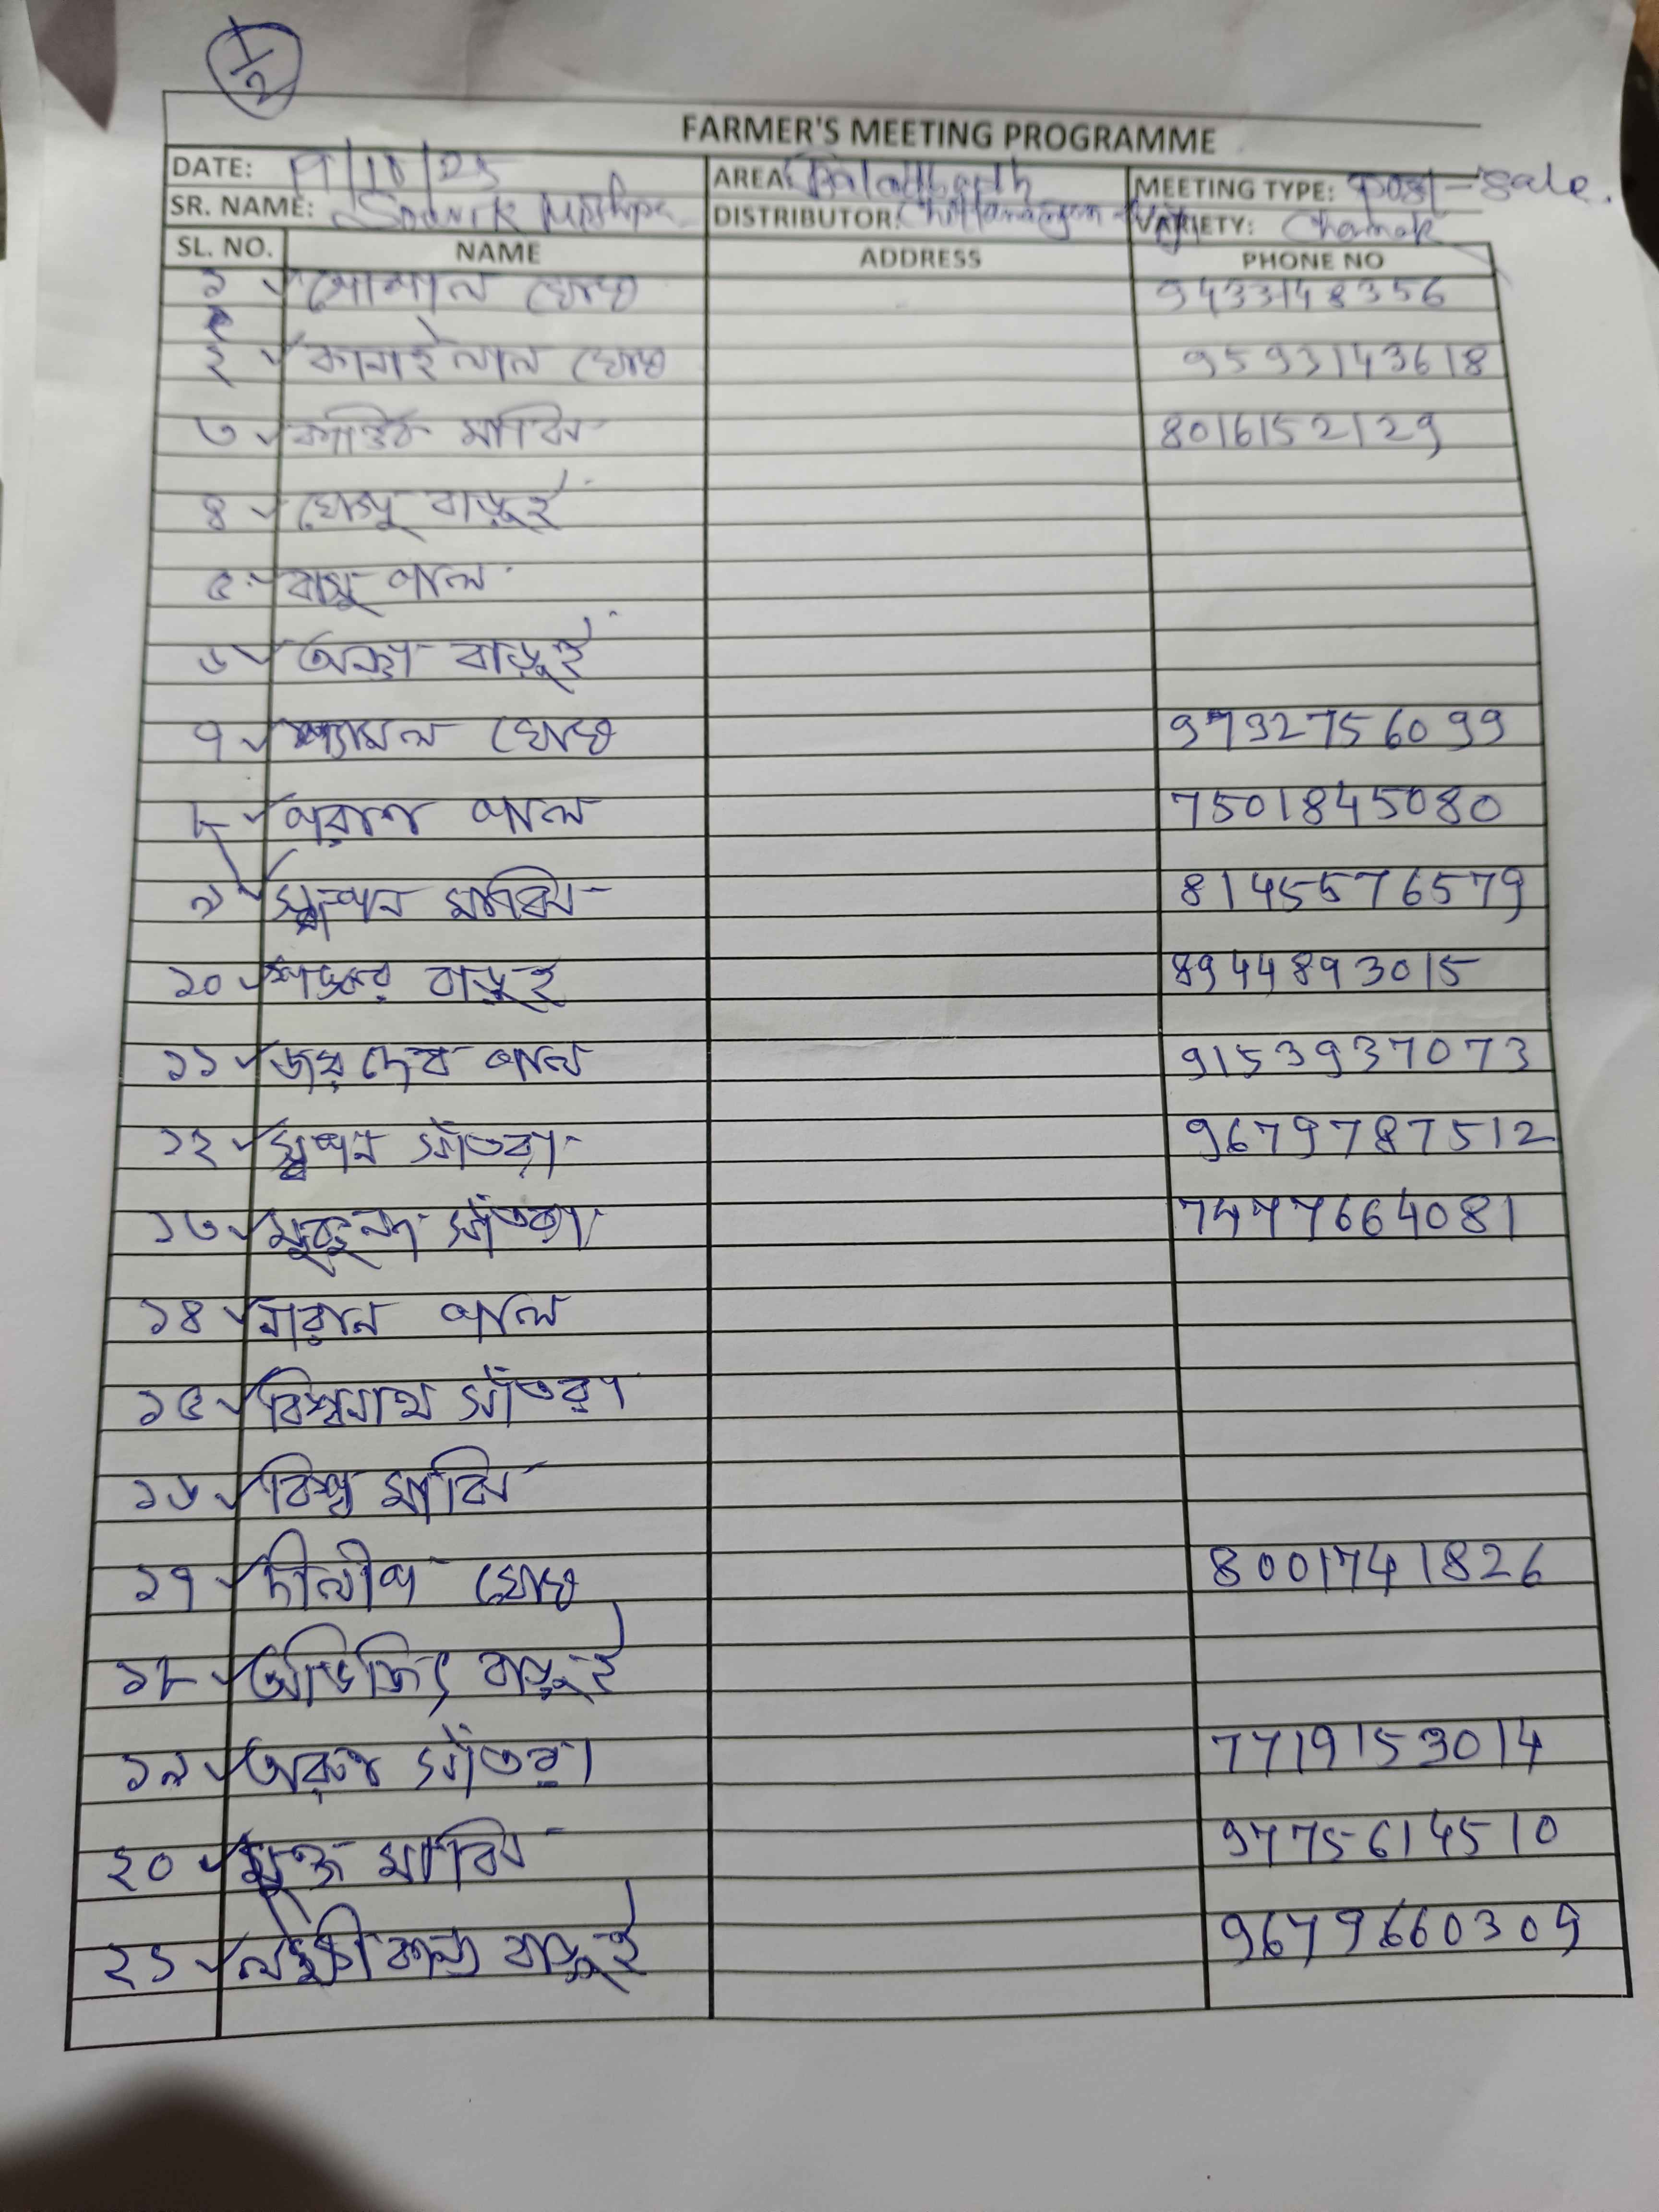 1/2
FARMER'S MEETING PROGRAMME
DATE: 19/10/25 AREA: MEETING TYPE: Post-Sale.
SR. NAME: DISTRIBUTOR: VARIETY: Chamak
SL. NO. NAME ADDRESS PHONE NO
১ গোপাল ঘোষ 9433148356
২ কানাইলাল ঘোষ 9593143618
৩ কার্তিক মাঝি 8016152129
৪ বাড়ুই
৫ বাসু পাল
৬ বাড়ুই
৭ শ্যামল ঘোষ 9732756099
৮ পরান পাল 7501845080
৯ স্বপন মাঝি 8145576579
১০ শঙ্কর বাড়ুই 8944893015
১১ জয়দেব পাল 9153937073
১২ স্বপন সাঁতরা 9679787512
১৩ মুকুন্দ সাঁতরা 7477664081
১৪ নারান পাল
১৫ বিশ্বনাথ সাঁতরা
১৬ বিশু মাঝি
১৭ দীলীপ ঘোষ 8001741826
১৮ অভিজিৎ বাড়ুই
১৯ অরুন সাঁতরা 7719153014
২০ মাঝি 9775614510
২১ লক্ষীকান্ত বাড়ুই 9679660309